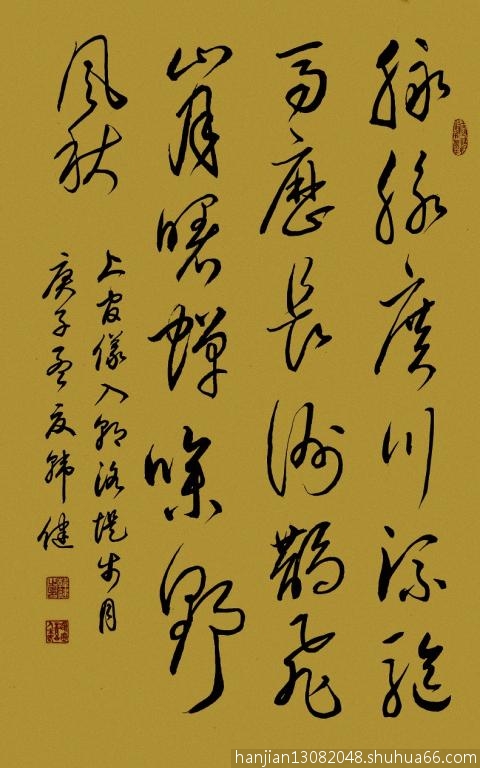 脉脉廣川流驅
馬歷長洲鵲飛
山月曙蟬噪野
風秋
上官儀入朝洛堤步月
庚子孟夏韓健
hanjian13082048.shuhua66.com